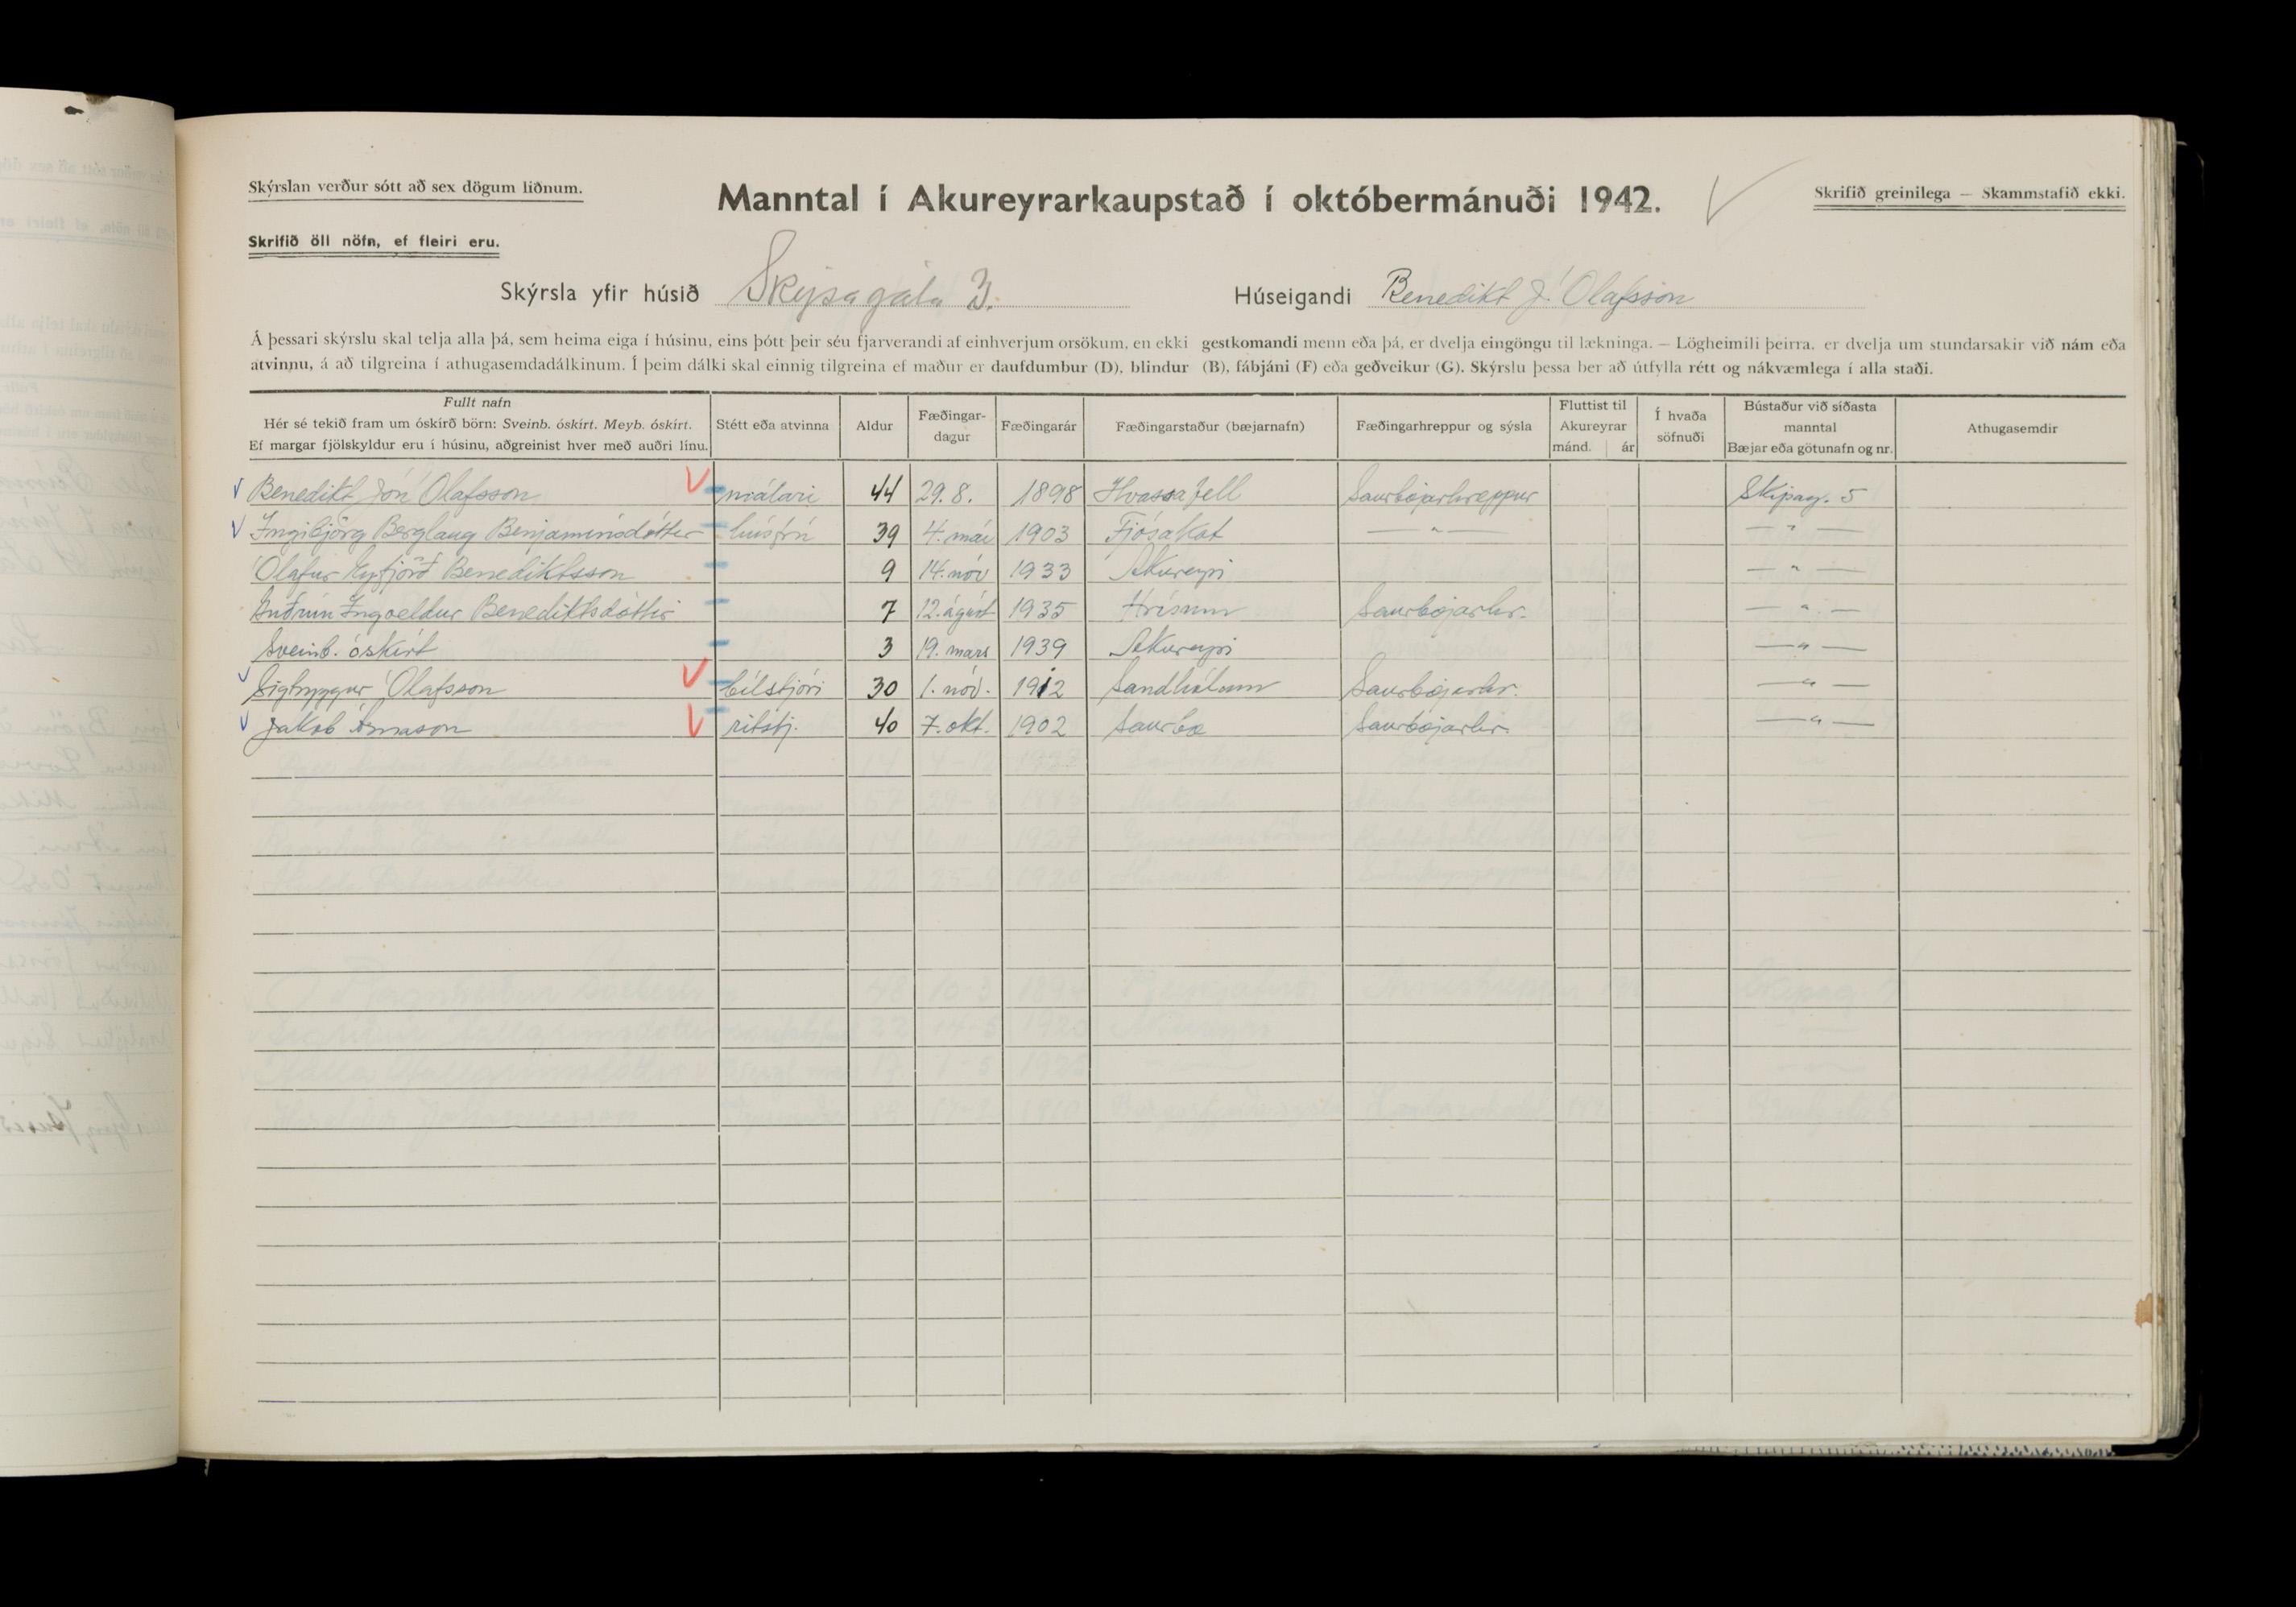 Skýrslan verður sótt að sex dögum liðnum.
Manntal í Akureyrarkaupstað í októbermánuði 1942.
Skrifið greinilega — Skammstafið ekki.
Skrifið öll nöfn, ef fleiri eru.
Skýrsla yfir húsið Skipagata 3. Húseigandi Benedikt J. Ólafsson
Á þessari skýrslu skal telja alla þá, sem heima eiga í húsinu, eins þótt þeir séu fjarverandi af einhverjum orsökum, en ekki gestkomandi menn eða þá, er dvelja eingöngu til lækninga. — Lögheimili þeirra, er dvelja um stundarsakir við nám eða
atvinnu, á að tilgreina í athugasemdadálkinum. Í þeim dálki skal einnig tilgreina ef maður er daufdumbur (D), blindur (B), fábjáni (F) eða geðveikur (G). Skýrslu þessa ber að útfylla rétt og nákvæmlega í alla staði.
Fullt nafn
Hér sé tekið fram um óskírð börn: Sveinb. óskírt. Meyb. óskírt.
Ef margar fjölskyldur eru í húsinu, aðgreinist hver með auðri línu.
Stétt eða atvinna
Aldur
Fæðingar-
dagur
Fæðingarár
Fæðingarstaður (bæjarnafn)
Fæðingarhreppur og sýsla
Fluttist til
Akureyrar
mánd. ár
Í hvaða
söfnuði
Bústaður við síðasta
manntal
Bæjar eða götunafn og nr.
Athugasemdir
Benedikt Jón Ólafsson málari 44 29.8. 1898 Hvassafell Saurbæjarhreppur Skipag. 5
Ingibjörg Berglaug Benjamínsdóttir húsfrú 39 4. maí 1903 Fjósakot — " — — " —
Ólafur Eyfjörð Benediktsson 9 14. nóv 1933 Akureyri — " —
Guðrún Ingveldur Benediktsdóttir 7 12. ágúst 1935 Hrísum Saurbæjarhr. — " —
Sveinb. óskírt 3 19. mars 1939 Akureyri — " —
Sigtryggur Ólafsson bílstjóri 30 1. nóv. 1912 Sandhólum Saurbæjarhr. — " —
Jakob Árnason ritstj. 40 7. okt. 1902 Saurbæ Saurbæjarhr. — " —